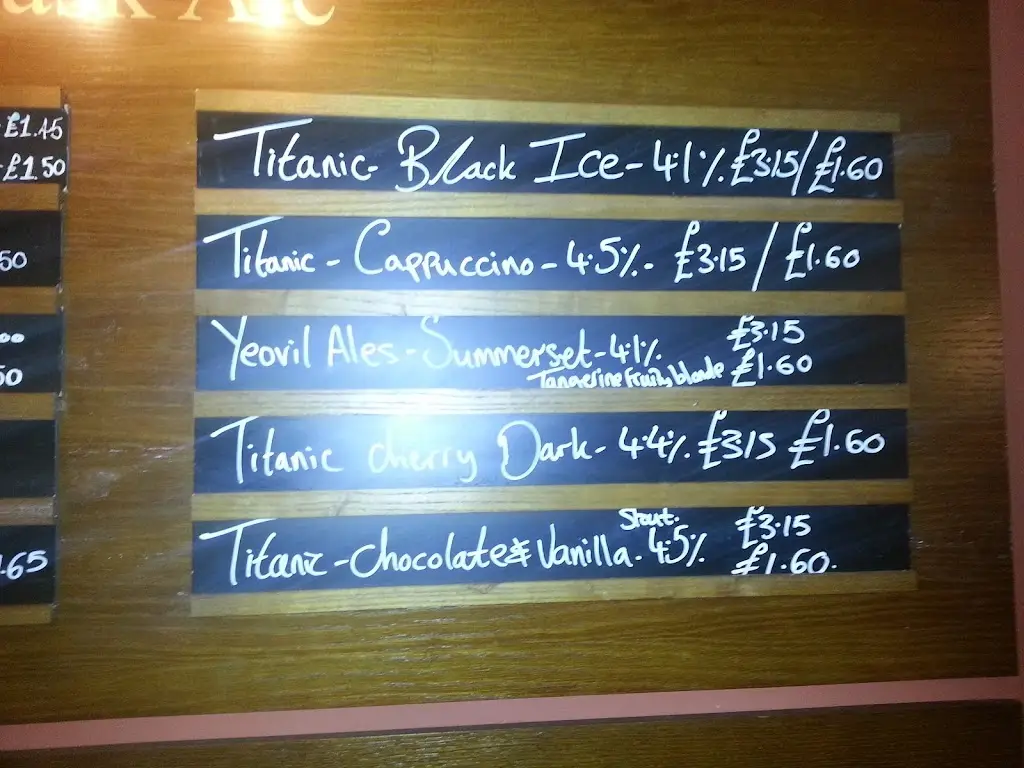 Ale
£1.45
-£1.50
50
00
50
.65
Titanic- Black Ice - 4.1%. £3.15/£1.60
Titanic - Cappuccino - 4.5%. - £3.15 / £1.60
Yeovil Ales - Summerset - 4.1% £3.15
Tangerine fruity blonde £1.60
Titanic cherry Dark - 4.4%. £3.15 £1.60
Stout.
Titanic - Chocolate & Vanilla. 4.5% £3.15
£1.60.